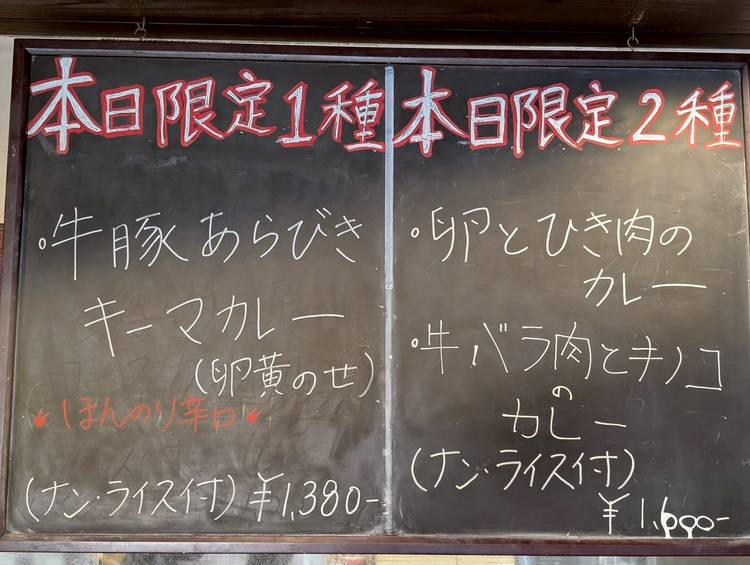 本日限定1種
。牛豚あらびき
キーマカレー
(卵黄のせ)
ほんのり辛口
(ナン・ライス付) ¥1,380-
本日限定2種
。卵とひき肉の
カレー
。牛バラ肉とキノコ
の
カレー
(ナン・ライス付)
¥1,600-